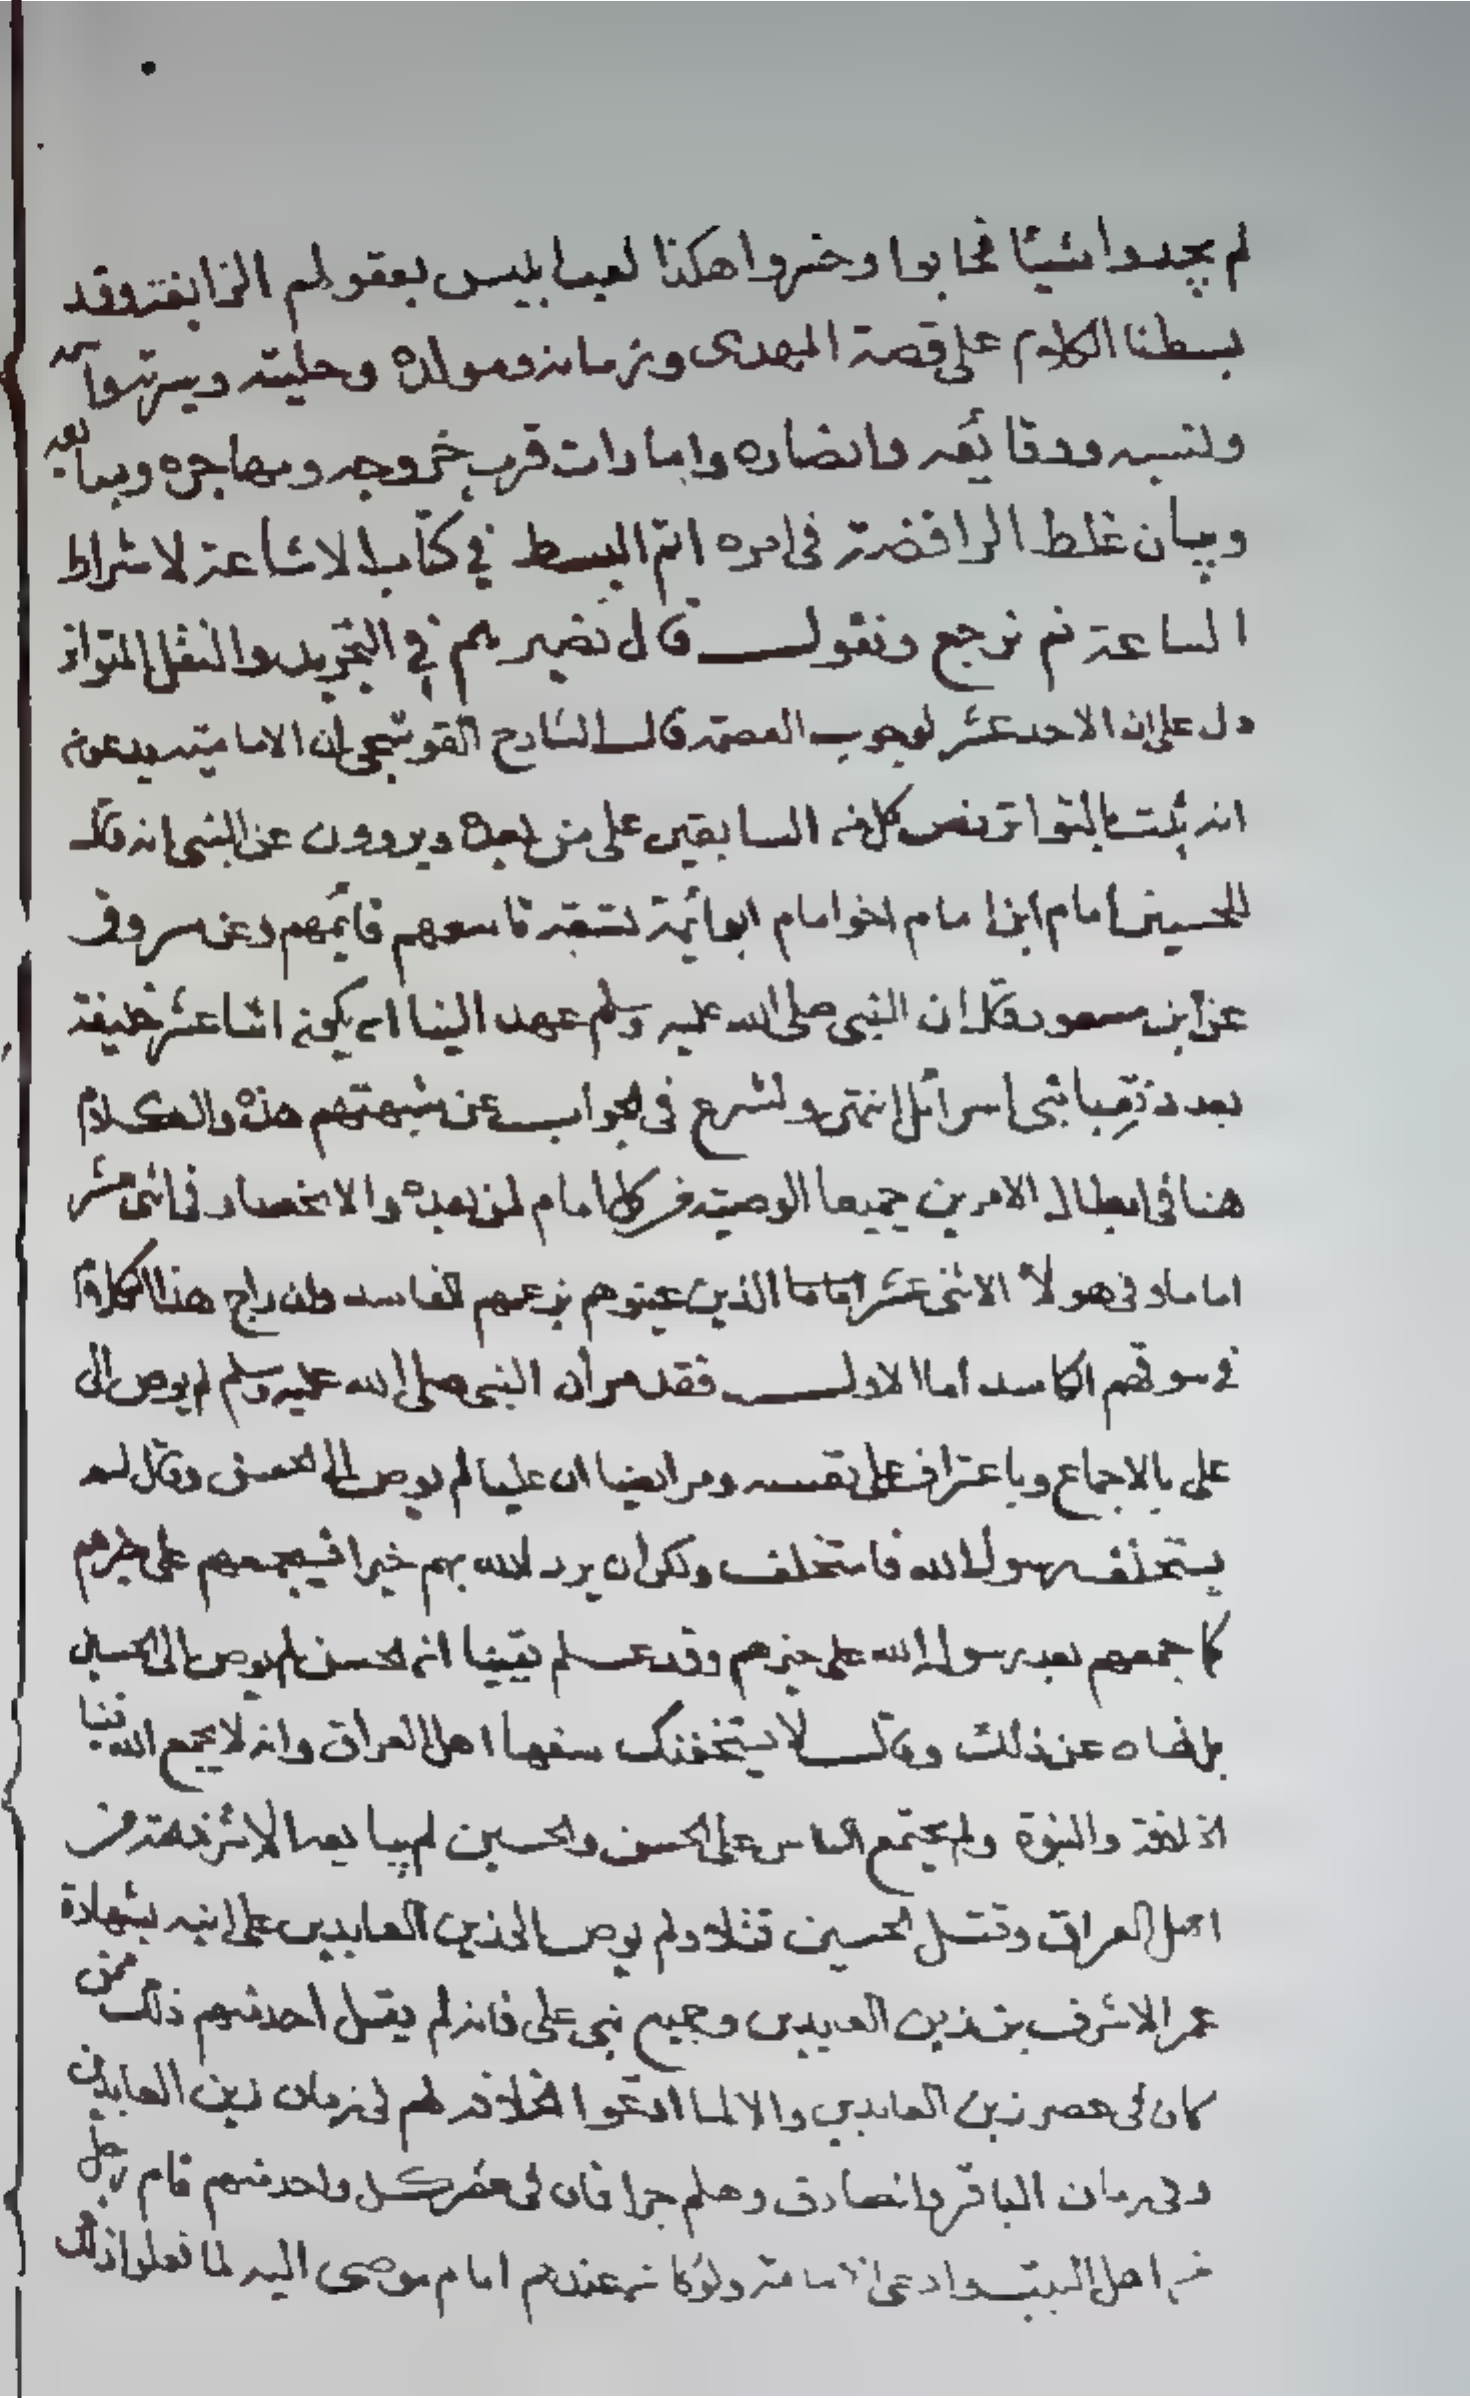 لم يجدوا شيئا فخابوا وخسروا هكذا لعب ابليس بعقولهم الزايغة وقد
بسطنا الكلام على قصة المهدى وزمانه ومولده وحليته وسيرته واسمه
ونسبه ووقائعه وانصاره وامارات قرب خروجه ومهاجره ومبايعه
وبيان غلط الرافضة فى امره اتم البسط في كتاب الاشاعة لاشراط
الساعة ثم نرجع ونقول قال نصيرهم في التجريد والنقل المتواتر
دل على ان الاحد عشر لوجوب العصمة قال الشارح القوشجى ان الامامية يدعون
انه ثبت بالتواتر نص كل من السابقين على من بعده ويروون عن النبى انه قال
للحسين امام ابن امام اخو امام ابو ائمة تسعة تاسعهم قائمهم وعن مسروق
عن ابن مسعود قال ان النبى صلى الله عليه وسلم عهد الينا ان يكون اثنا عشر خليفة
بعدد نقبا بنى اسرائل انتهى ولنشرع فى الجواب عن شبهتهم هذه والكلام
هنا فى ابطال الامرين جميعا الوصية من كل امام لمن بعده والانحصار فى اثنى عشر
اماما و فى هولاء الاثنى عشر اماما الذين عينوهم بزعمهم الفاسد وان راج هذا الكلام
في سوقهم الكاسد أما الاول فقد مر أن النبى صلى الله عليه وسلم لم يوص الى
على بالاجماع وباعتراف على نفسه ومر ايضا ان عليا لم يوص الى الحسن وقال لم
يستخلف رسول الله فاستخلف ولكن ان يرد الله بهم خيرا فيجمعهم على خيرهم
كما جمعهم بعد رسول الله على خيرهم وقد علم يقينا ان الحسن لم يوص الى الحسين
بل نهاه عن ذلك وقال لا يستخفنك سفها اهل العراق وانه لا يجمع الله فينا
الخلافة والنبوة ولم يجتمع الناس على الحسن والحسين لم يبايعه الا شرذمة من
اهل العراق وقتل الحسين قتلا ولم يوص الى زين العابدين على ابنه بشهادة
عمر الاشرف بن زين العابدين وجميع بنى على فانه لم يقل احد منهم ذلك ممن
كان فى عصر زين العابدين والا لما ادعوا الخلافة لهم فى زمان زين العابدين
وفى زمان الباقر والصادق وهلم جرا فان فى عصر كل واحد منهم قام رجل
من اهل البيت وادعى الامامة ولو كان عندهم امام موصى اليه لما فعلوا ذلك